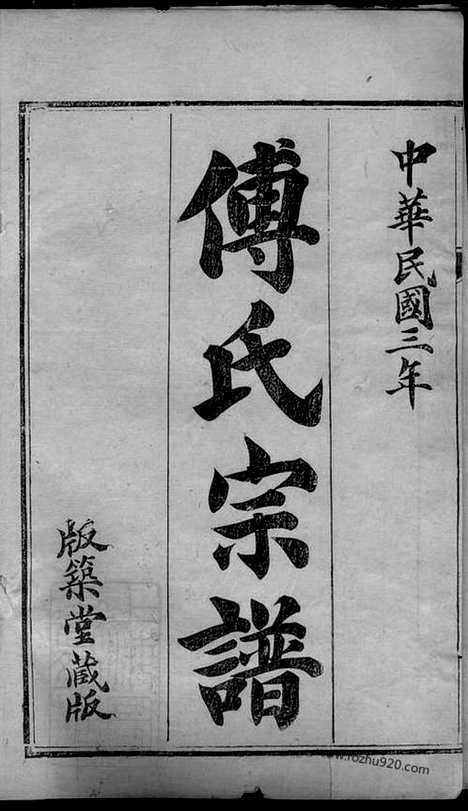 中華民國三年
傅氏宗譜
版築堂藏版
www.rozhu920.com